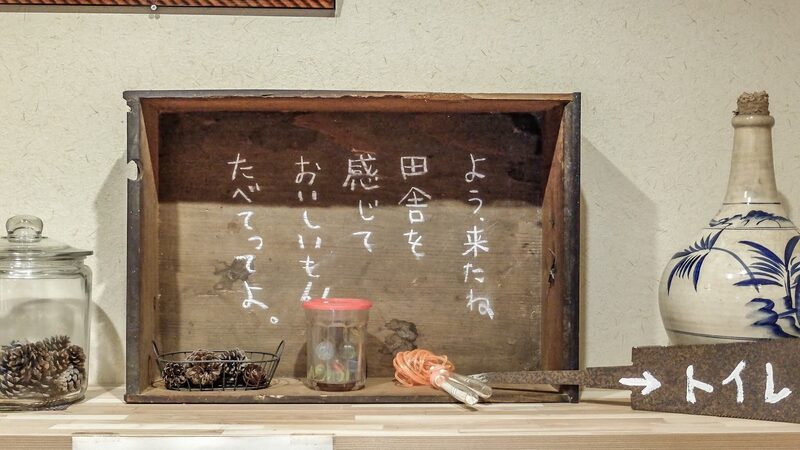 よう、来たね
田舎を
感じて
おいしいも
たべてってよ。
→トイレ